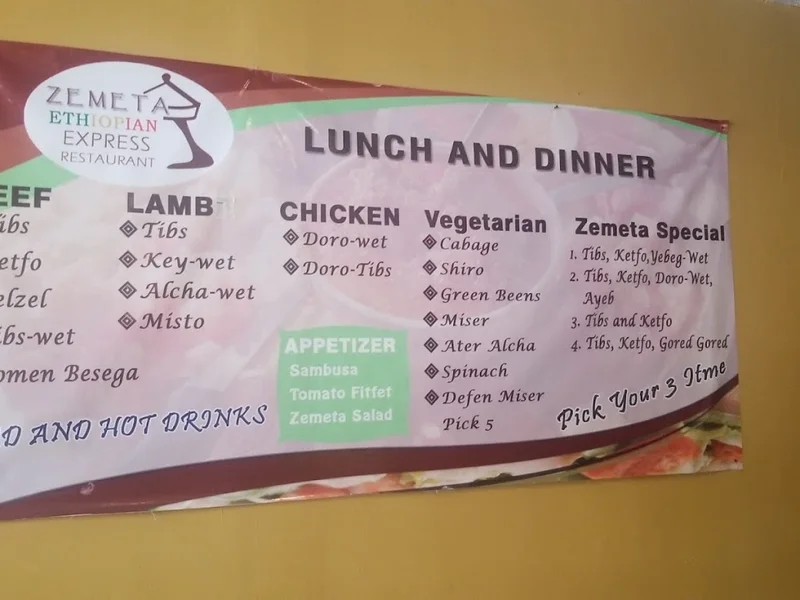 ZEMETA
ETHIOPIAN
EXPRESS
RESTAURANT
LUNCH AND DINNER
EEF
ibs
etfo
elzel
ibs-wet
omen Besega
LAMB
Tibs
Key-wet
Alcha-wet
Misto
CHICKEN
Doro-wet
Doro-Tibs
APPETIZER
Sambusa
Tomato Fitfet
Zemeta Salad
Vegetarian
Cabage
Shiro
Green Beens
Miser
Ater Alcha
Spinach
Defen Miser
Pick 5
Zemeta Special
1. Tibs, Ketfo,Yebeg-Wet
2. Tibs, Ketfo, Doro-Wet,
Ayeb
3. Tibs and Ketfo
4. Tibs, Ketfo, Gored Gored
Pick Your 3 Itme
D AND HOT DRINKS